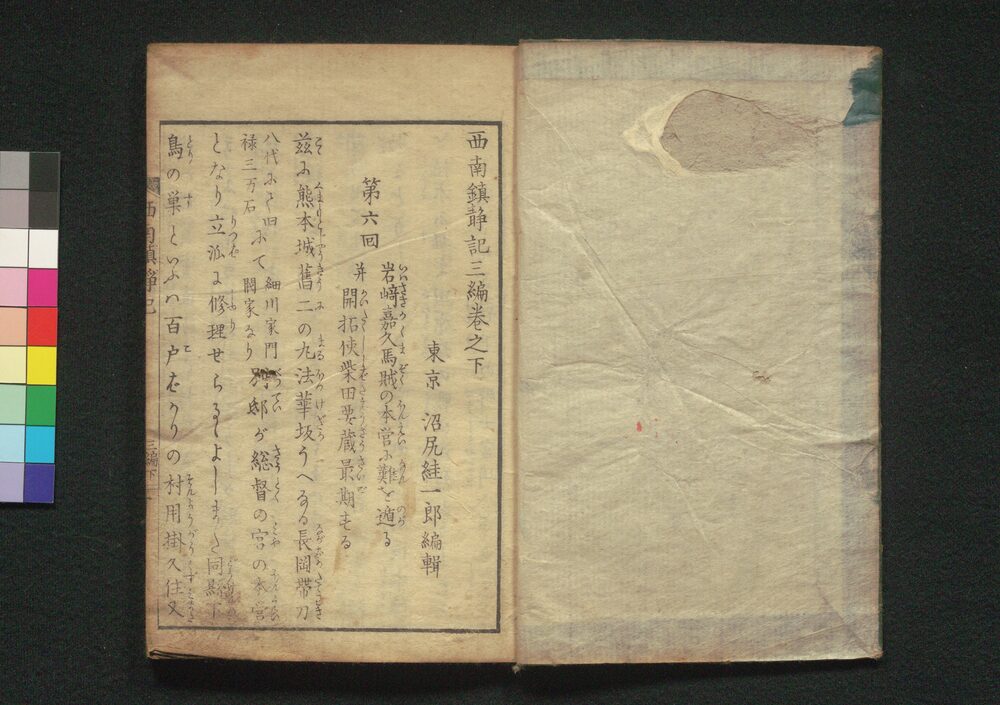 西南鎮静記三編巻之下
東京 沼尻絓一郎編輯
第六回
岩﨑嘉久馬賊の本営に難を遁る
并開拓使柴田要蔵最期する
茲に熊本城舊二の丸法華坂うへなる長岡帯刀
八代にて旧
禄三万石
にて
細川家門
閥家なり
別邸が総督の宮の本営
となり立派に修理せらるゝよしまた同縣下
鳥の巣といふハ百戸ばかりの村用掛久住又
三編下